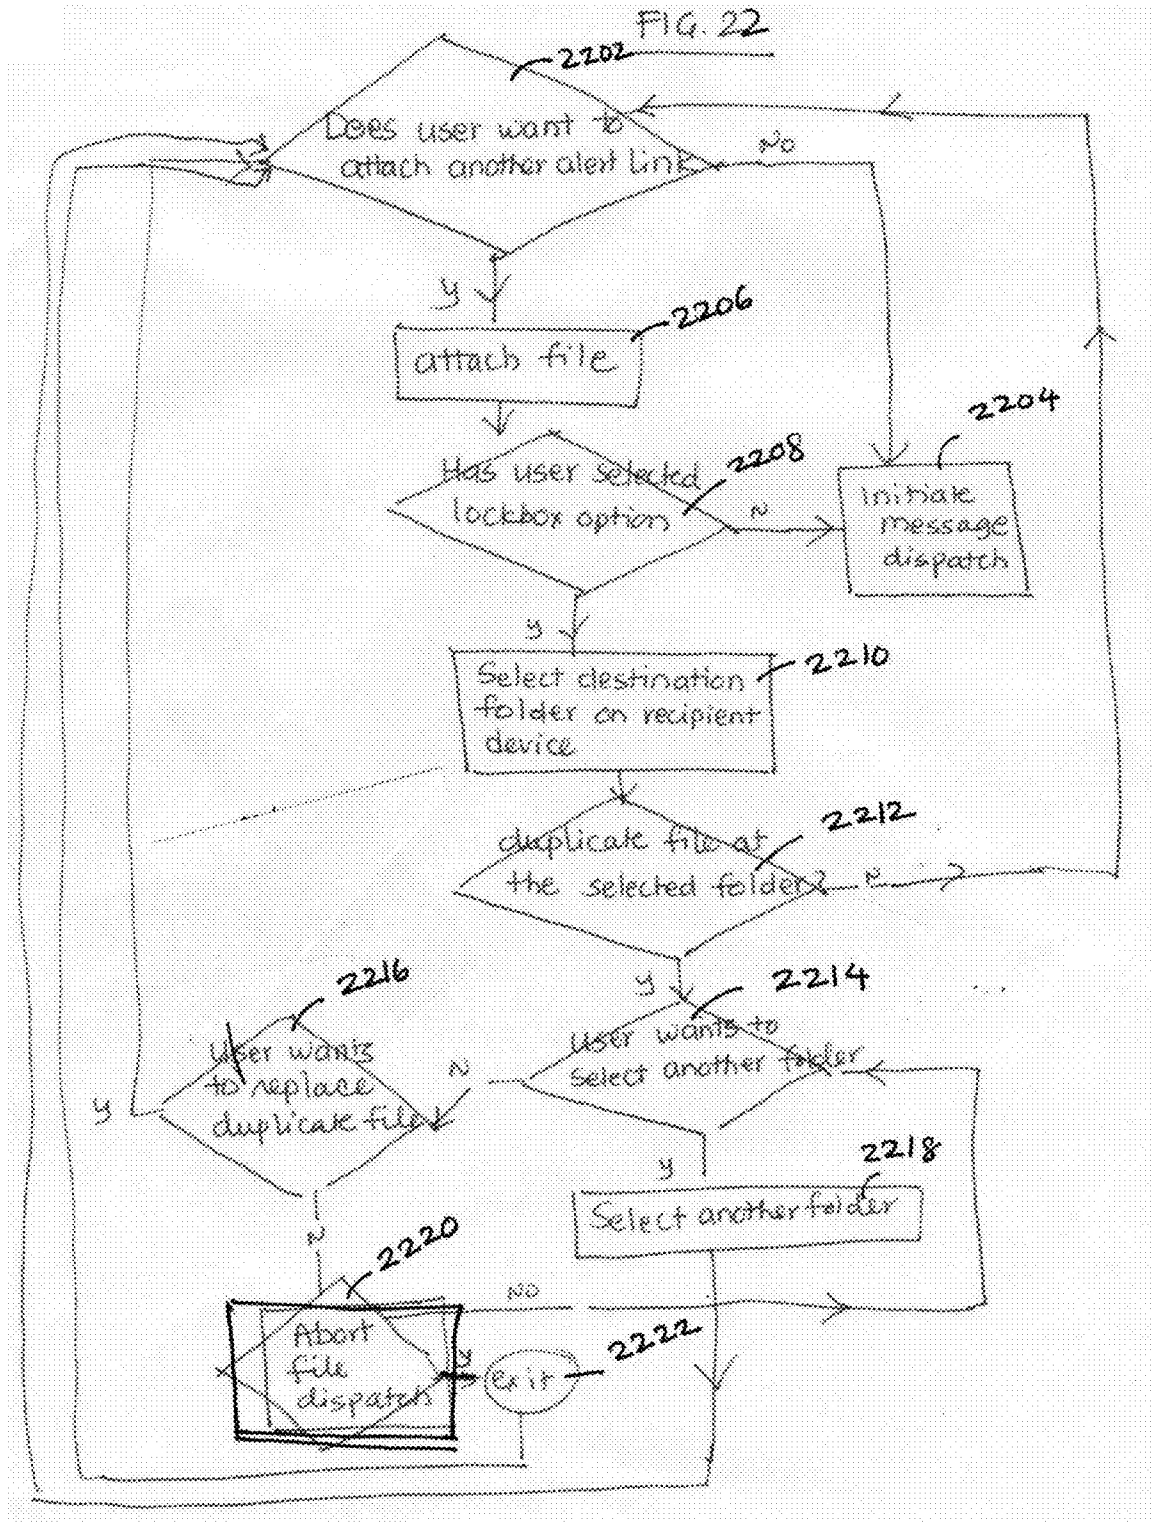 FIG. 22
2202
Does user want to
attach another alert link
No
Y
2206
attach file
2204
2208
Has user selected
lockbox option
N
initiate
message
dispatch
Y
2210
Select destination
folder on recipient
device
2212
duplicate file at
the selected folder?
N
2216
Y
2214
User wants to
select another folder
User wants
to replace
duplicate file
N
Y
2218
Y
Select another folder
N
2220
NO
Abort
file
dispatch
Y
2222
Exit